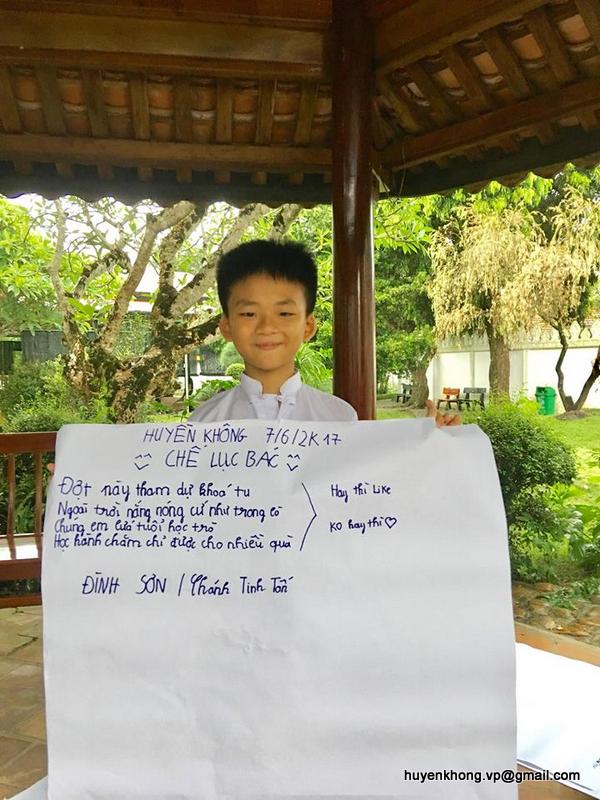 HUYỀN KHÔNG 7/6/2K17
CHẾ LỤC BÁC
Đợt này tham dự khoá tu
Ngoài trời nắng nóng cứ như trong lò
Chúng em lứa tuổi học trò
Học hành chăm chỉ được cho nhiều quà
Hay thì Like
Ko hay thì ♡
ĐÌNH SƠN / Thánh Tinh Tấn
huyenkhong.vp@gmail.com